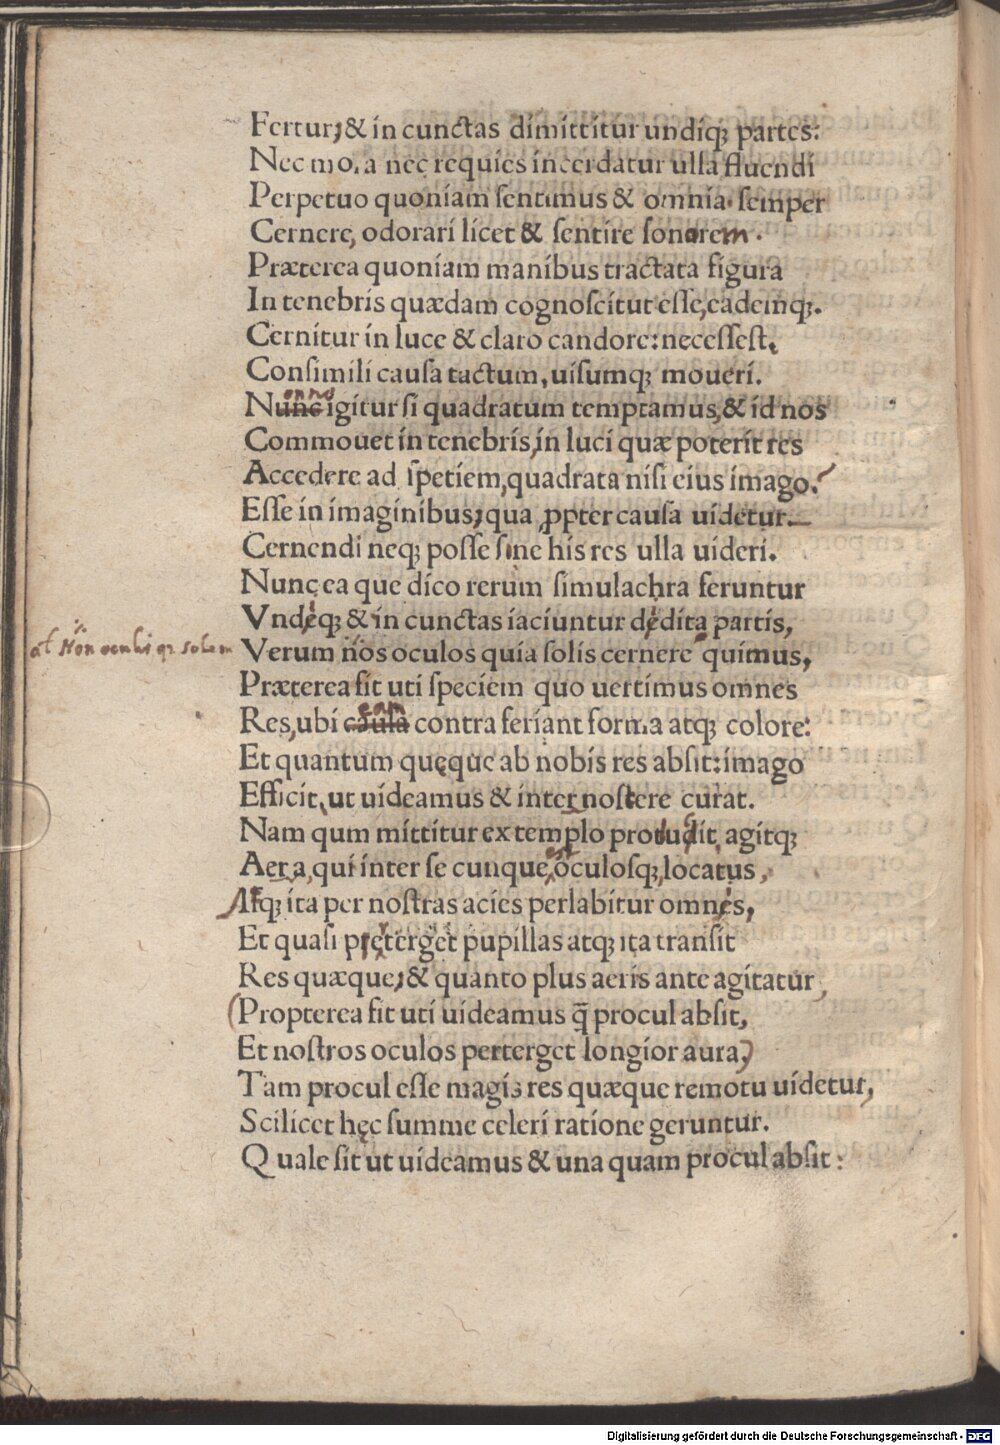 Fertur;& in cunctas dimittitur undiq; partes:
Nec mora nec requies incerdatur ulla fluendi
Perpetuo quoniam sentimus & omnia semper
Cernere, odorari licet & sentire sonorem.
Præterea quoniam manibus tractata figura
In tenebris quædam cognoscitut esse, eademq;.
Cernitur in luce & claro candore: necessest,
Consimili causa tactum, uisumq; moueri.
Nunc igitur si quadratum temptamus,& id nos
Commouet in tenebris,in luci quæ poterit res
Accedere ad spetiem,quadrata nisi eius imago.
Esse in imaginibus;qua ꝓpter causa uidetur.
Cernendi neq; posse sine his res ulla uideri.
Nunc ea que dico rerum simulachra feruntur
Vndeq; & in cunctas iaciuntur dedita partis,
at Non oculis qa solem
Verum nos oculos quia solis cernere quimus,
Præterea fit uti speciem quo uertimus omnes
Res,ubi causa contra feriant forma atq; colore:
eam
Et quantum quęque ab nobis res absit: imago
Efficit, ut uideamus & internostere curat.
Nam qum mittitur extemplo protudit, agitq;
Aera,qui inter se cunque, oculosq;,locatus,
est
Atq; ita per nostras acies perlabitur omnes,
Et quasi pręterget pupillas atq; ita transit
Res quæque;& quanto plus aeris ante agitatur,
(Propterea fit uti uideamus q̄ procul absit,
Et nostros oculos perterget longior aura,)
Tam procul esse magis res quæque remotu uidetur,
Scilicet hęc summe celeri ratione geruntur.
Quale sit ut uideamus & una quam procul absit:
Digitalisierung gefördert durch die Deutsche Forschungsgemeinschaft - DFG